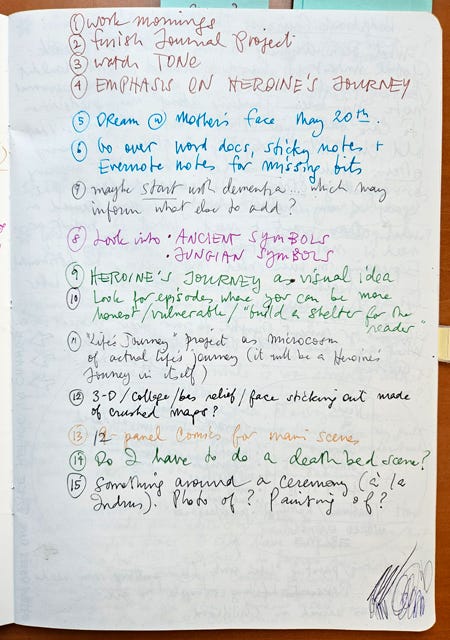 ① work mornings
② finish Journal Project
③ watch TONE
④ EMPHASIS ON HEROINE'S JOURNEY
⑤ Dream @ Mother's face May 20th.
⑥ Go over word docs, sticky notes +
Evernote notes for missing bits
⑦ maybe start with dementia... which may
inform what else to add?
⑧ Look into • ANCIENT SYMBOLS
• JUNGIAN SYMBOLS
⑨ HEROINE'S JOURNEY as visual idea
⑩ Look for episodes where you can be more
honest/vulnerable/"build a shelter for the
reader"
⑪ "Life's Journey" project as microcosm
of actual life's journey (it will be a Heroine's
Journey in itself)
⑫ 3-D/college/bas relief/face sticking out made
of crushed maps?
⑬ 12-panel comics for main scenes
⑭ Do I have to do a deathbed scene?
⑮ Something around a ceremony (à la
). Photo of? Painting of?